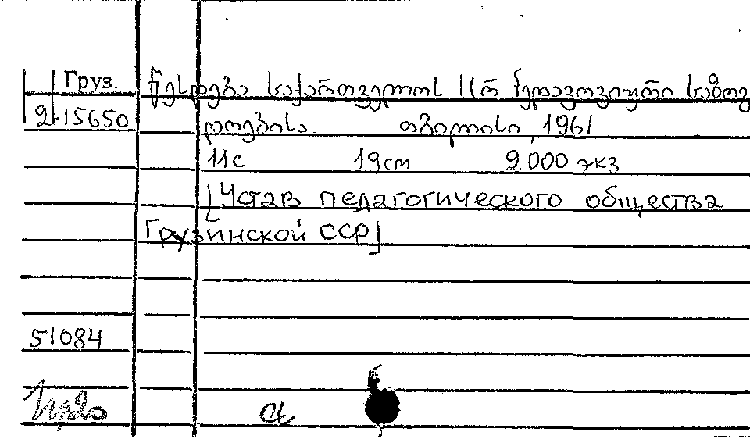 Груз. წესდება საქართველოს სსრ პედაგოგიური საზოგ
2-15650 დოებისა. თბილისი, 1961
11с 19см 2000 экз
[Устав педагогического общества
Грузинской ССР]
51084